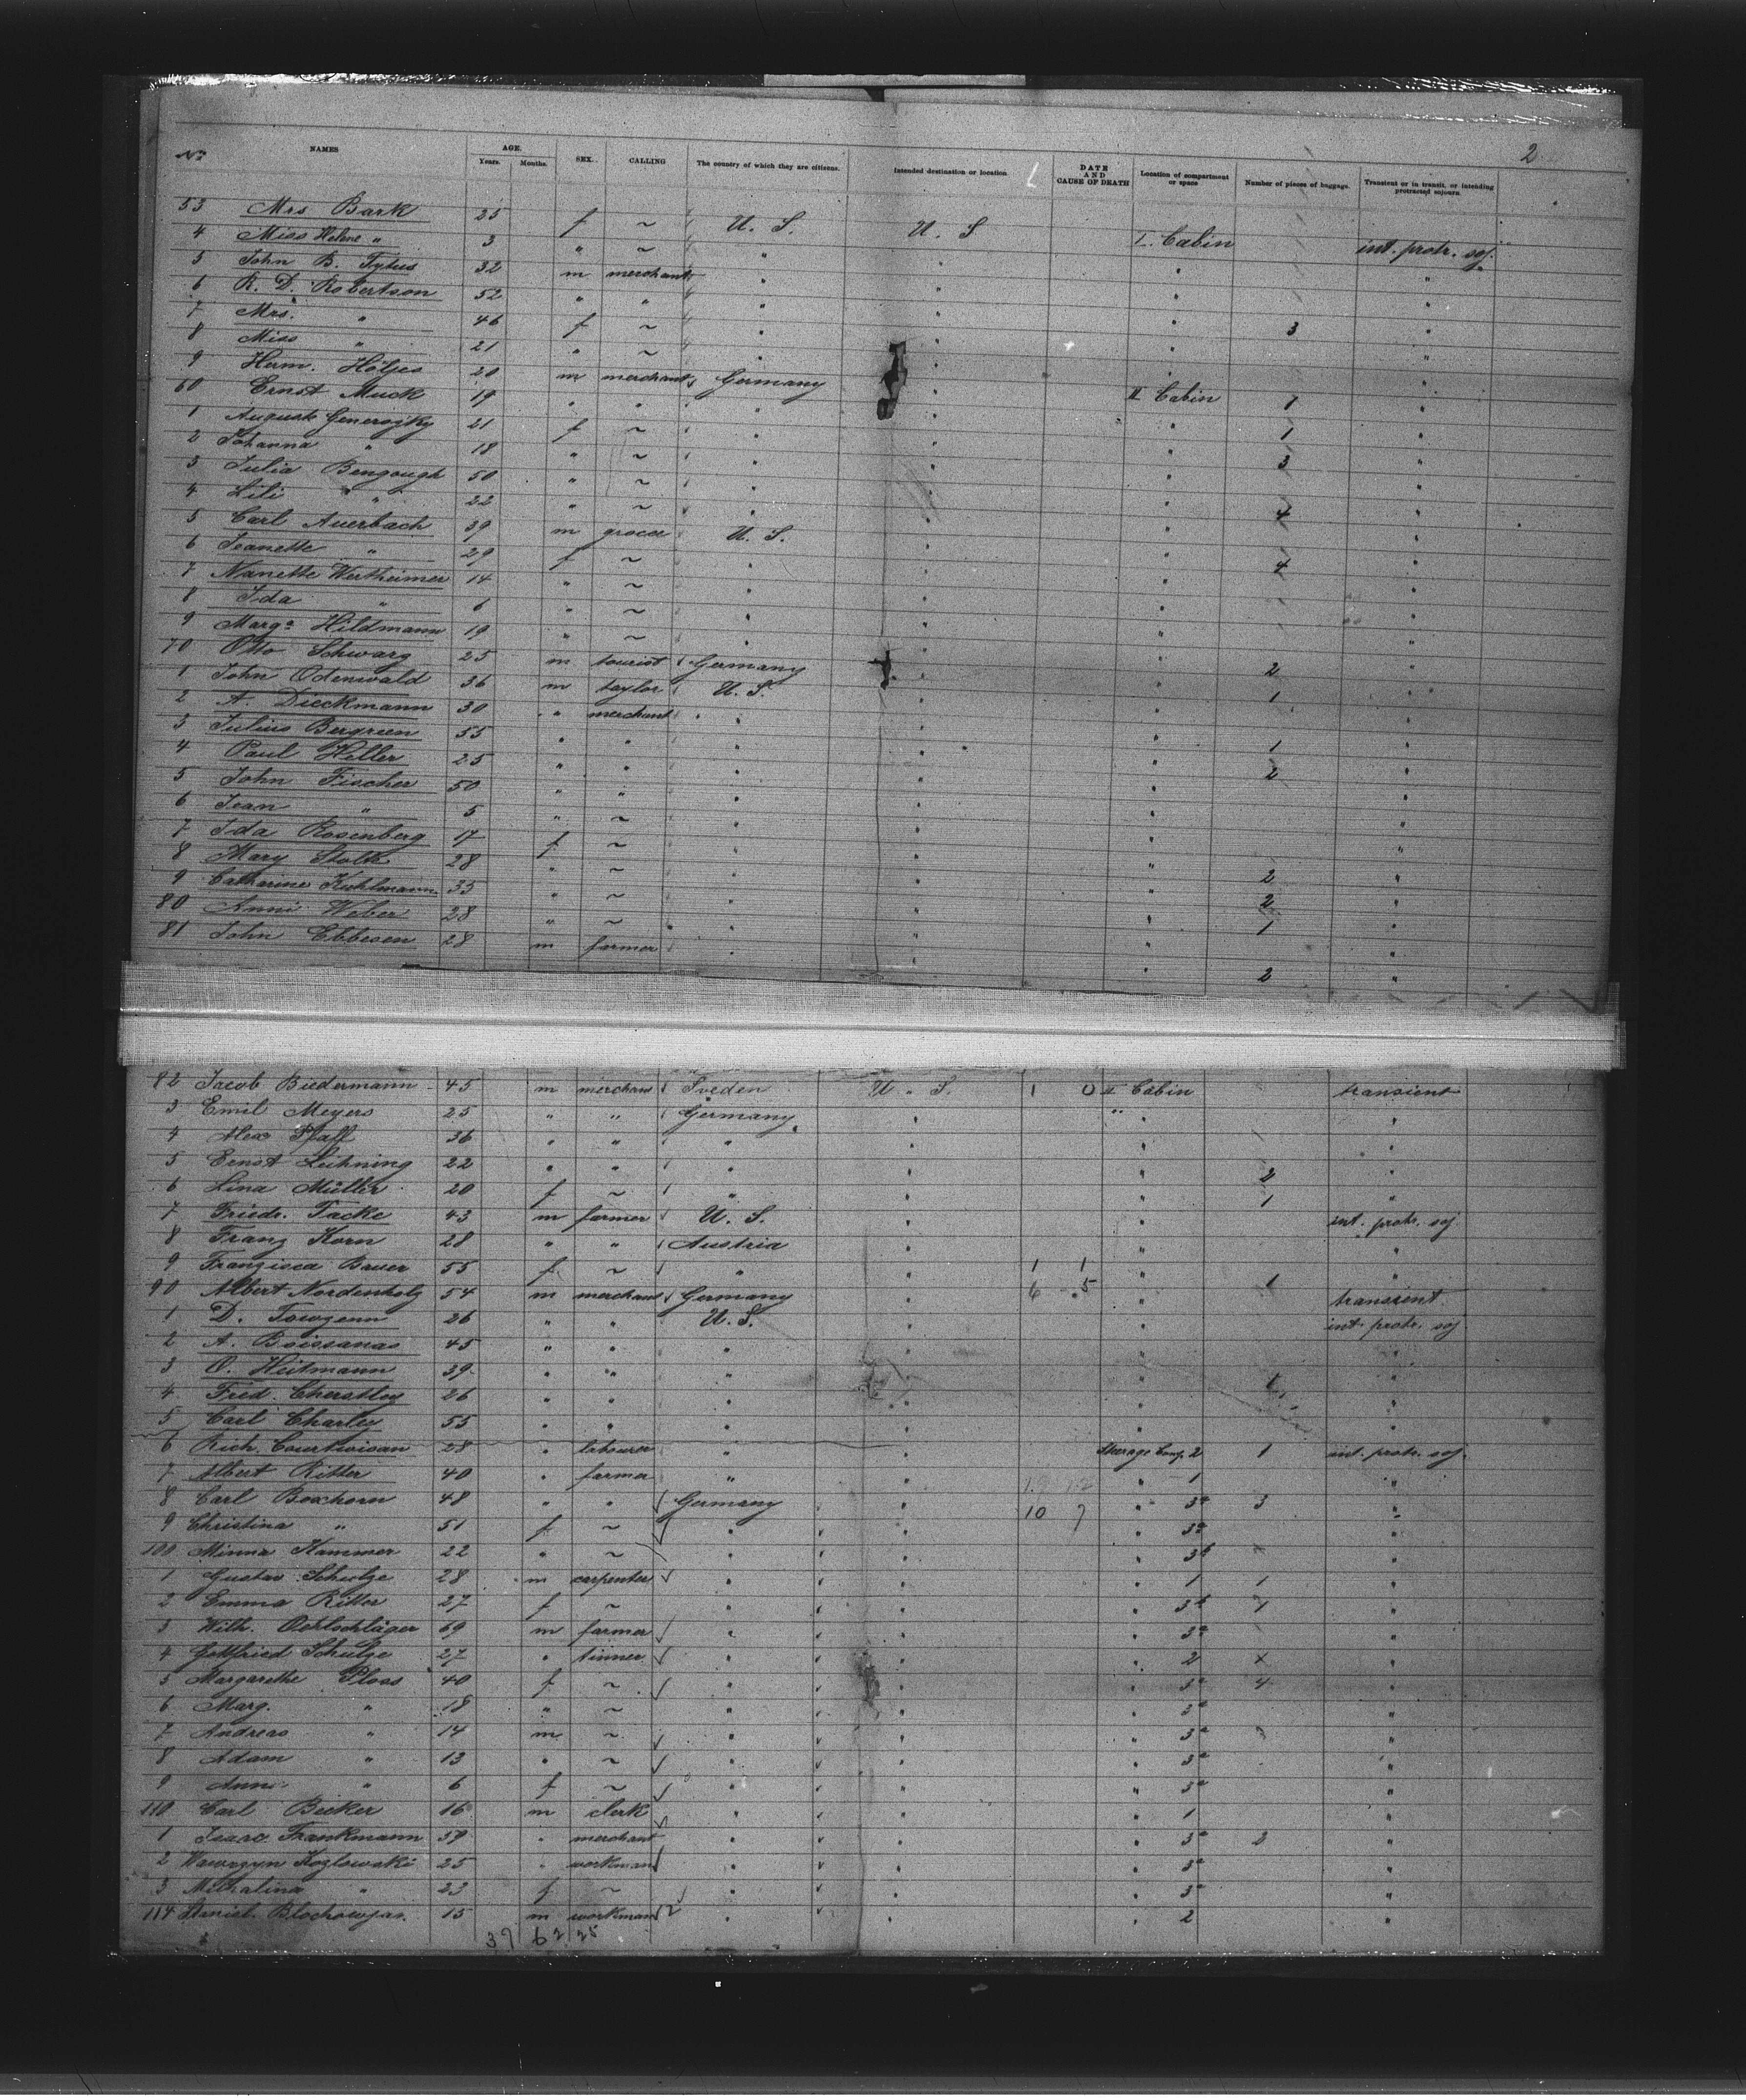 2
No NAMES AGE. Years. Months. SEX. CALLING The country of which they are citizens. Intended destination or location DATE AND CAUSE OF DEATH Location of compartment or space Number of pieces of baggage. Transient or in transit, or intending protracted sojourn.
53 Mrs Bark 25 f ~ U. S. U. S I. Cabin int. protr. soj.
4 Miss Helene " 3 " ~ " " " "
5 John B. Tytus 32 m merchant " " " "
6 R. D. Robertson 52 " " " " " "
7 Mrs. " 46 f ~ " " " 3 "
8 Miss " 21 " ~ " " " "
9 Herm. Höljes 20 m merchant Germany " II Cabin 1 "
60 Ernst Muck 19 " " " " " 1 "
1 Auguste 21 f ~ " " " 3 "
2 Johanna " 18 " ~ " " " "
3 Julia Bengough 50 " ~ " " " 4 "
4 Lili " 22 " ~ " " " "
5 Carl Auerbach 39 m grocer U. S. " " 4 "
6 Jeanette " 29 f ~ " " " "
7 Nanette Wertheimer 14 " ~ " " " "
8 Ida " 6 " ~ " " " "
9 Marga Hildmann 19 " ~ " " " 2 "
70 Otto Schwarz 25 m tourist Germany " " 1 "
1 John Odenwald 36 m taylor U. S. " " "
2 A. Dieckmann 30 " merchant " " " 1 "
3 Julius Bergreen 55 " " " " " 2 "
4 Paul Heller 25 " " " " " "
5 John Fischer 50 " " " " " "
6 Jean " 5 " ~ " " " "
7 Ida Rosenberg 17 f ~ " " " 2 "
8 Mary Stolte 28 " ~ " " " 2 "
9 Catharine Kuhlmann 35 " ~ " " " 1 "
80 Anni Weber 28 " ~ " " " "
81 John Ebbesen 28 m farmer " " " 2 "
82 Jacob Biedermann 45 m merchant Sveden U. S. 1 0 II Cabin transient
3 Emil Meyers 25 " " Germany " " "
4 Alex Pfaff 36 " " " " " "
5 Ernst Leihning 22 " " " " " 2 "
6 Lina Müller 20 f ~ " " " 1 "
7 Friedr. Tacke 43 m farmer U. S. " " int. protr. soj
8 Franz Korn 28 " " Austria " " "
9 Franzisca Bauer 55 f ~ " " 1 1 " 1 "
90 Albert Nordenholz 54 m merchant Germany " 6 5 " transient
1 D. 26 " " U. S. " " int. protr. soj
2 A. Boissanas 45 " " " " " "
3 O. Heitmann 39 " " " " " 1 "
4 Fred. 26 " " " " " "
5 Carl Charley 55 " " " " " "
6 Rich. 28 " labourer " " Steerage Comp. 2 1 int. protr. soj.
7 Albert Ritter 40 " farmer " " " 1 "
8 Carl Boxhorn 48 " " Germany " 10 7 " 3a 3 "
9 Christina " 51 f ~ " " " 3a "
100 Minna Kammer 22 " ~ " " " 3b "
1 Gustav Schulze 28 m carpenter " " " 1 1 "
2 Emma Ritter 27 f ~ " " " 3b 1 "
3 Wilh. Oehlschläger 69 m farmer " " " 3a "
4 Gottfried Schulze 27 " tinner " " " 2 "
5 Margarethe Ploss 40 f ~ " " " 3a 4 "
6 Marg. " 18 " ~ " " " 3a "
7 Andreas " 14 m ~ " " " 3a "
8 Adam " 13 " ~ " " " 3a "
9 Anni " 6 f ~ " " " 3a "
110 Carl Becker 16 m clerk " " " 1 "
1 Isaac Frankmann 59 " merchant " " " 3a 2 "
2 Wawrzyn Kozlowski 25 " workman " " " 3a "
3 Michalina " 23 f ~ " " " 3a "
114 15 m workman " " " 2 "
37 62 25